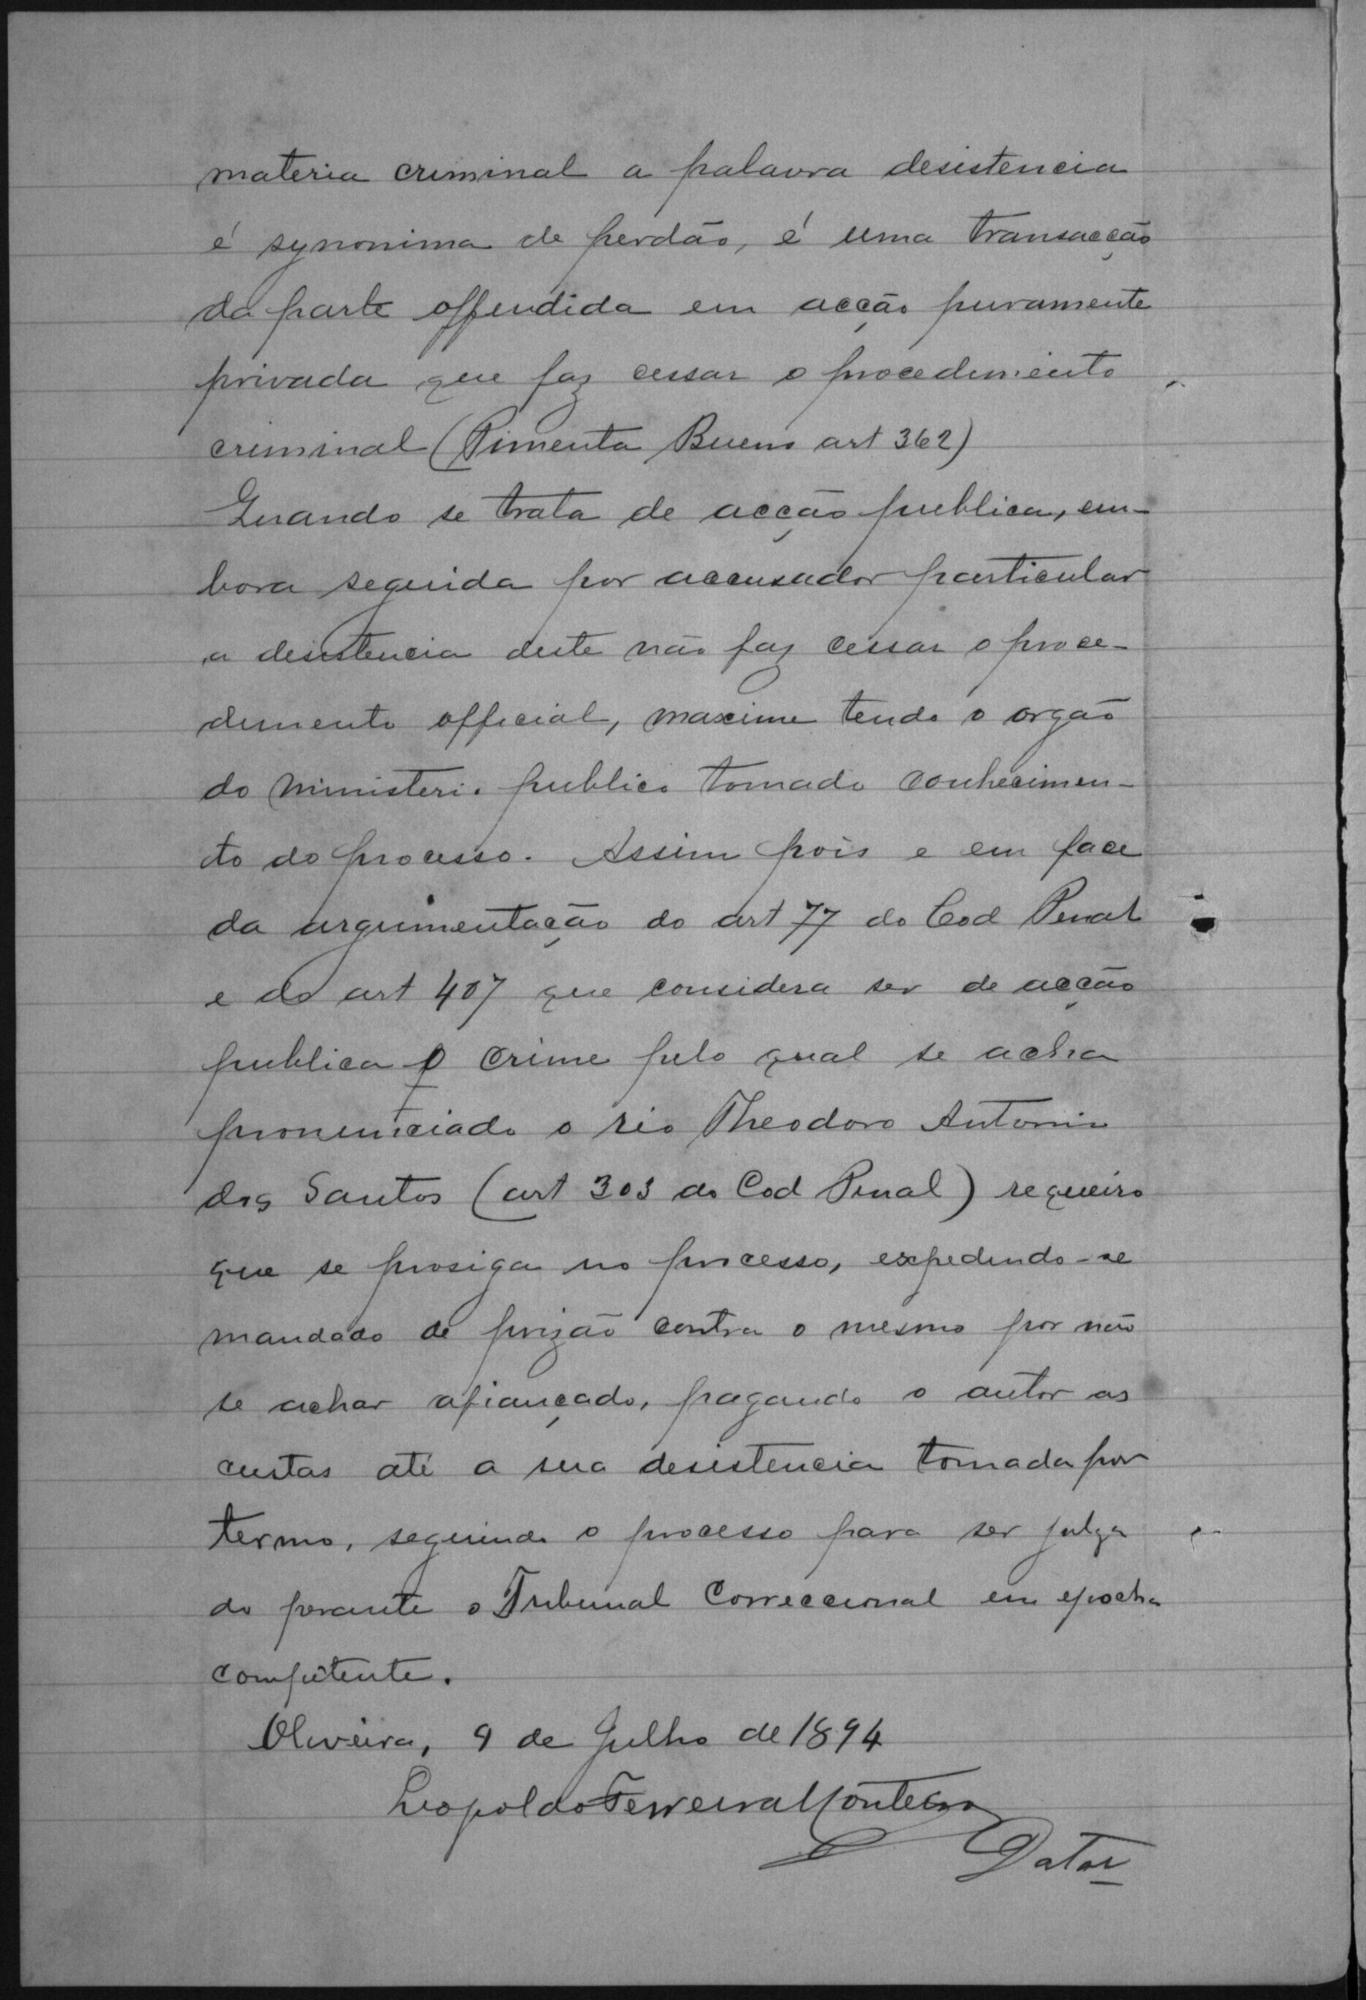 materia criminal a palavra desistencia
é synonima de perdão, é uma transacção
da parte offendida em acção puramente
privada que faz cessar o procedimento
criminal (Pimenta Bueno art 362)
Quando se trata de acção publica, em-
bora seguida por accusador particular
a desistencia deste não faz cessar o proce-
dimento official, maxime tendo o orgão
do ministerio publico tomado conhecimen-
to do processo. Assim pois e em face
da argumentação do art 77 do Cod Penal
e do art 407 que considera ser de acção
publica o crime pelo qual se acha
pronunciado o réo Theodoro Antonio
dos Santos (art 303 do Cod Penal) requeiro
que se prosiga no processo, expedindo-se
mandado de prizão contra o mesmo por não
se achar afiançado, pagando o autor as
custas até a sua desistencia tomada por
termo, seguindo o processo para ser julga
do perante o Tribunal Correccional em epocha
competente.
Oliveira, 9 de Julho de 1894
Leopoldo Ferreira Monteiro